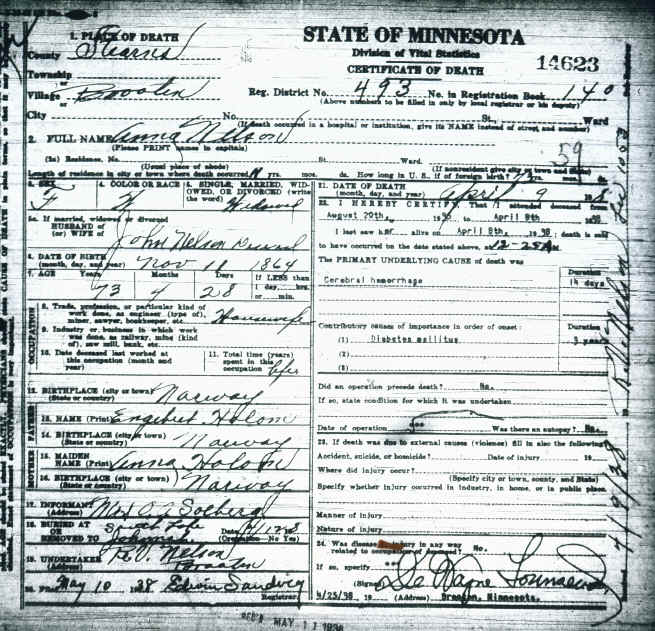 STATE OF MINNESOTA
Division of Vital Statistics
CERTIFICATE OF DEATH
14623
1. PLACE OF DEATH
County Stearns
Township
or
Village Brooten
or
City No. St. Ward
Reg. District No. 493 No. in Registration Book 140
(Above numbers to be filled in only by local registrar or his deputy)
(If death occurred in a hospital or institution, give its NAME instead of street and number)
2. FULL NAME Anna Nelson
(Please PRINT names in capitals)
59
(2a) Residence. No. St. Ward.
(Usual place of abode) (If nonresident give city or town and State)
Length of residence in city or town where death occurred mos. ds. How long in U. S., if of foreign birth? 73 yrs. mos.
3. SEX
F
4. COLOR OR RACE
W
5. SINGLE, MARRIED, WIDOWED, OR DIVORCED (write the word)
Widowed
5a. If married, widowed or divorced
HUSBAND of
(or) WIFE of John Nelson
6. DATE OF BIRTH
(month, day, and year) Nov 11 1864
7. AGE Years Months Days If LESS than
1 day, hrs.
or min.
73 4 28
OCCUPATION
8. Trade, profession, or particular kind of
work done, as engineer (type),
miner, sawyer, bookkeeper, etc. Housewife
9. Industry or business in which work
was done, as railway, mine (kind
of), saw mill, bank, etc.
10. Date deceased last worked at
this occupation (month and
year)
11. Total time (years)
spent in this
occupation life
12. BIRTHPLACE (city or town)
(State or country) Norway
FATHER
13. NAME (Print) Engebret Holom
14. BIRTHPLACE (city or town)
(State or country) Norway
MOTHER
15. MAIDEN
NAME (Print) Anna Holom
16. BIRTHPLACE (city or town)
(State or country) Norway
17. INFORMANT Mrs O. A. Solberg
(Address)
18. BURIED AT
OR
REMOVED TO Date
(Cremation—No Yes)
19. UNDERTAKER R. O. Nelson
(Address) Brooten
20. Filed May 10 1938 Edwin Sandvig
Registrar
21. DATE OF DEATH
(month, day, and year) April 9 1938
22. I HEREBY CERTIFY, That I attended deceased from
August 20th, 19 to April 8th 1938
I last saw her alive on April 8th, 1938; death is said
to have occurred on the date stated above, at 12-25 AM
The PRIMARY UNDERLYING CAUSE of death was
Duration
Cerebral hemorrhage 14 days
Contributory causes of importance in order of onset: Duration
(1) Diabetes mellitus 3 years
(2)
(3)
Did an operation precede death? No.
If so, state condition for which it was undertaken
Date of operation Was there an autopsy? No.
23. If death was due to external causes (violence) fill in also the following
Accident, suicide, or homicide? Date of injury 19
Where did injury occur?
(Specify city or town, county, and State)
Specify whether injury occurred in industry, in home, or in public place.
Manner of injury
Nature of injury
24. Was disease or injury in any way
related to occupation of deceased? No.
If so, specify
(Signed)
4/25/38, 19 (Address) Brooten, Minnesota.
MAY 11 1938